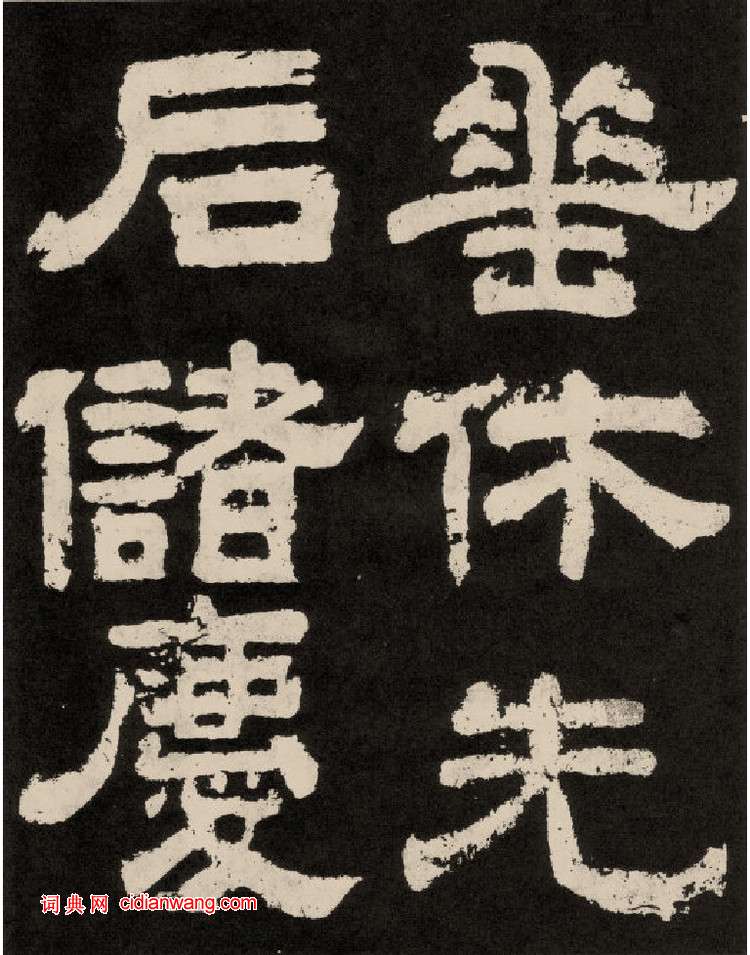 垂休先
后儲慶
词典网 cidianwang.com